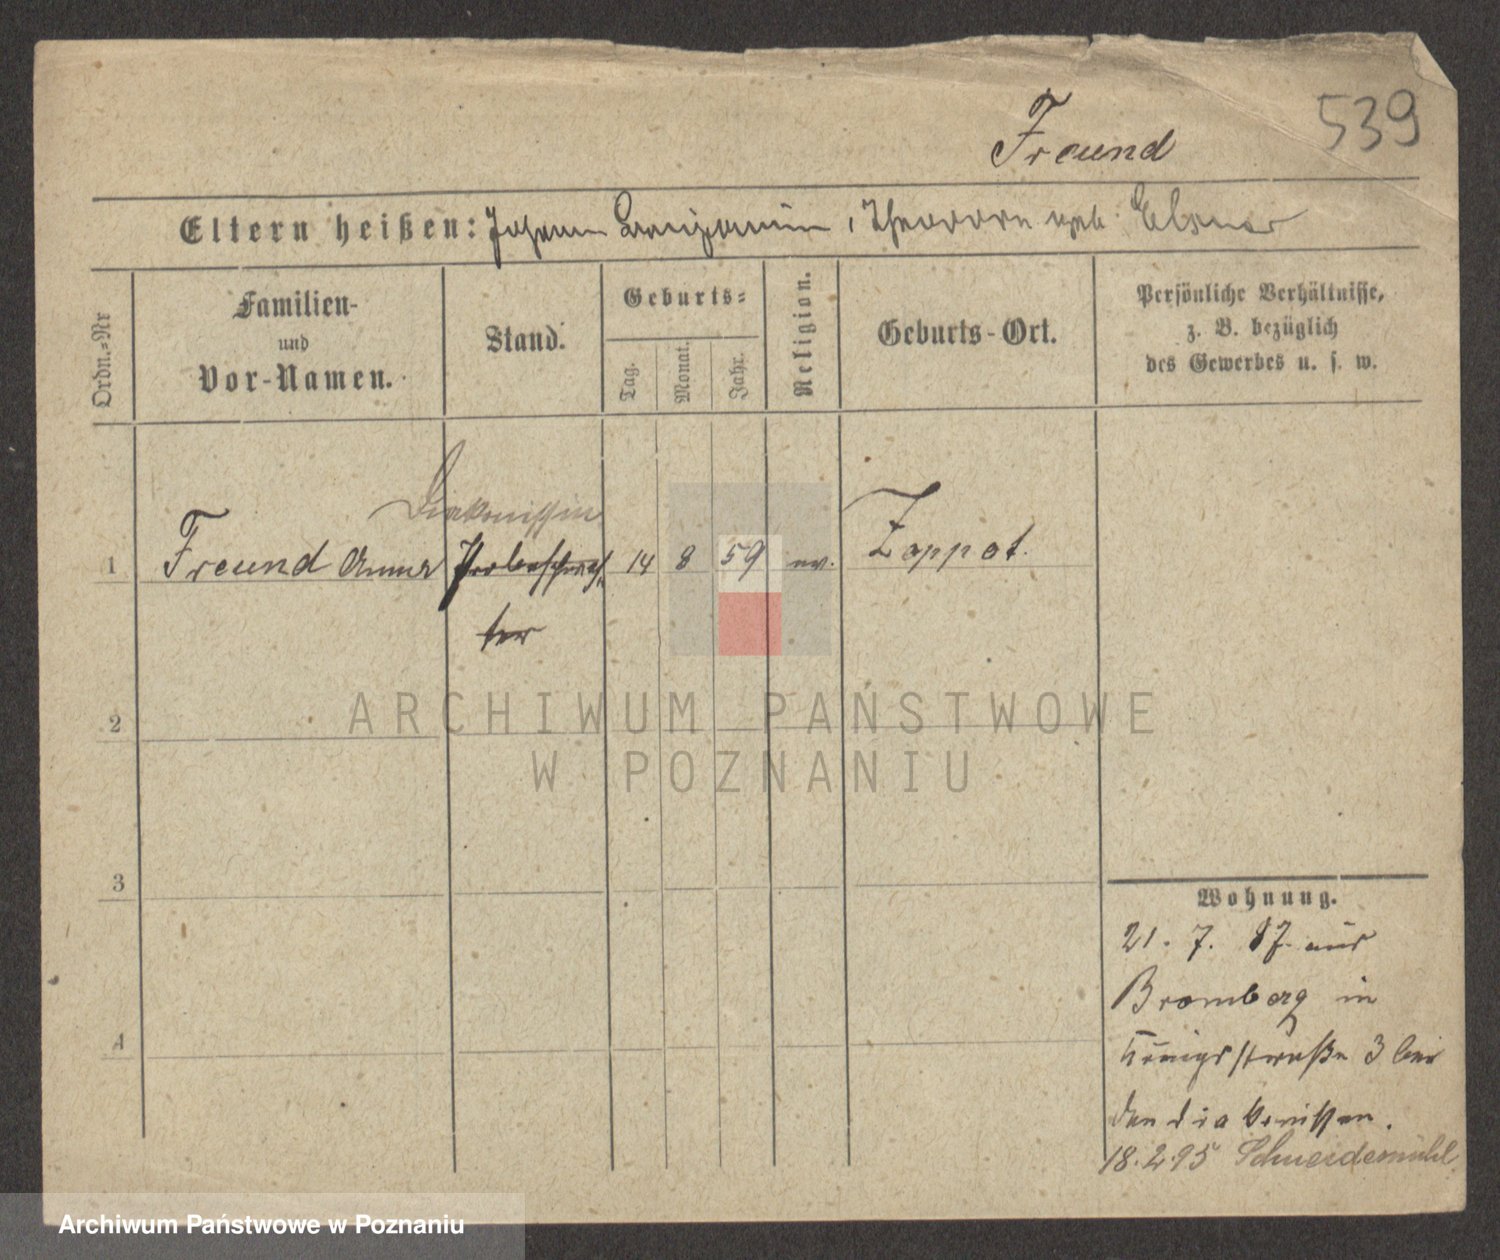 539
Freund
Eltern heißen: Johann Benjamin, Theodore geb. Elsner
Ordn.-Nr
Familien-
und
Vor-Namen.
Stand.
Geburts-
Tag.
Monat.
Jahr.
Religion.
Geburts-Ort.
Persönliche Verhältnisse,
z. B. bezüglich
des Gewerbes u. s. w.
Diakonissin
1 Freund Anna Probeschwes- 14 8 59 ev. Zoppot.
ter
2
3
4
Wohnung.
21. 7. 87 aus
Bromberg in
Königsstraße 3 bei
den Diakonissen.
18.2.95 Schneidemühl
ARCHIWUM PAŃSTWOWE
W POZNANIU
Archiwum Państwowe w Poznaniu